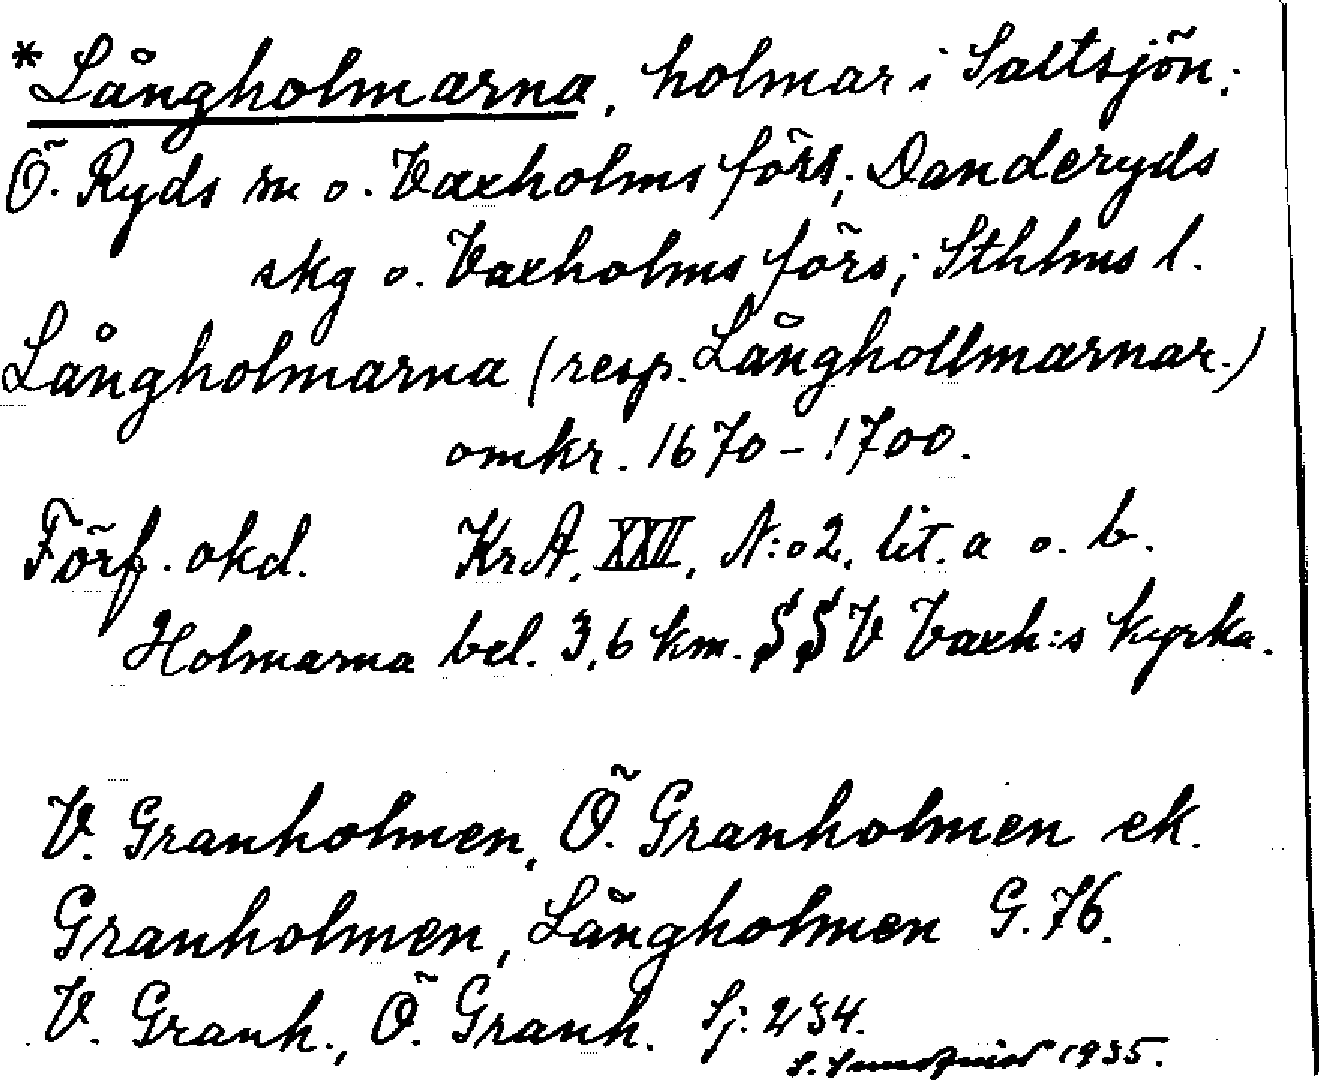 *Långholmarna, holmar i Saltsjön;
Ö. Ryds sn o. Vaxholms förs; Danderyds
skg o. Vaxholms förs; Sthlms l.
Långholmarna (resp. Långhollmarnar.)
omkr. 1670-1700.
Förf. okd. KrA, XXII, N:o 2, lit. a o. b.
Holmarna bel. 3,6 km. SSV Vaxh:s kyrka.
V. Granholmen, Ö. Granholmen ek.
Granholmen, Långholmen G. 76.
V. Granh., Ö. Granh. Sj. 234.
1935.